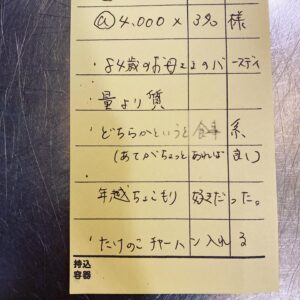 @4,000 × 3名 様
・84歳のお母さまのバースディ
・量より質
・どちらかというと 系
(あてがちょっとあれば良し)
・年越ちょこもり 好きだった。
・たけのこチャーハン入れる
持込
容器